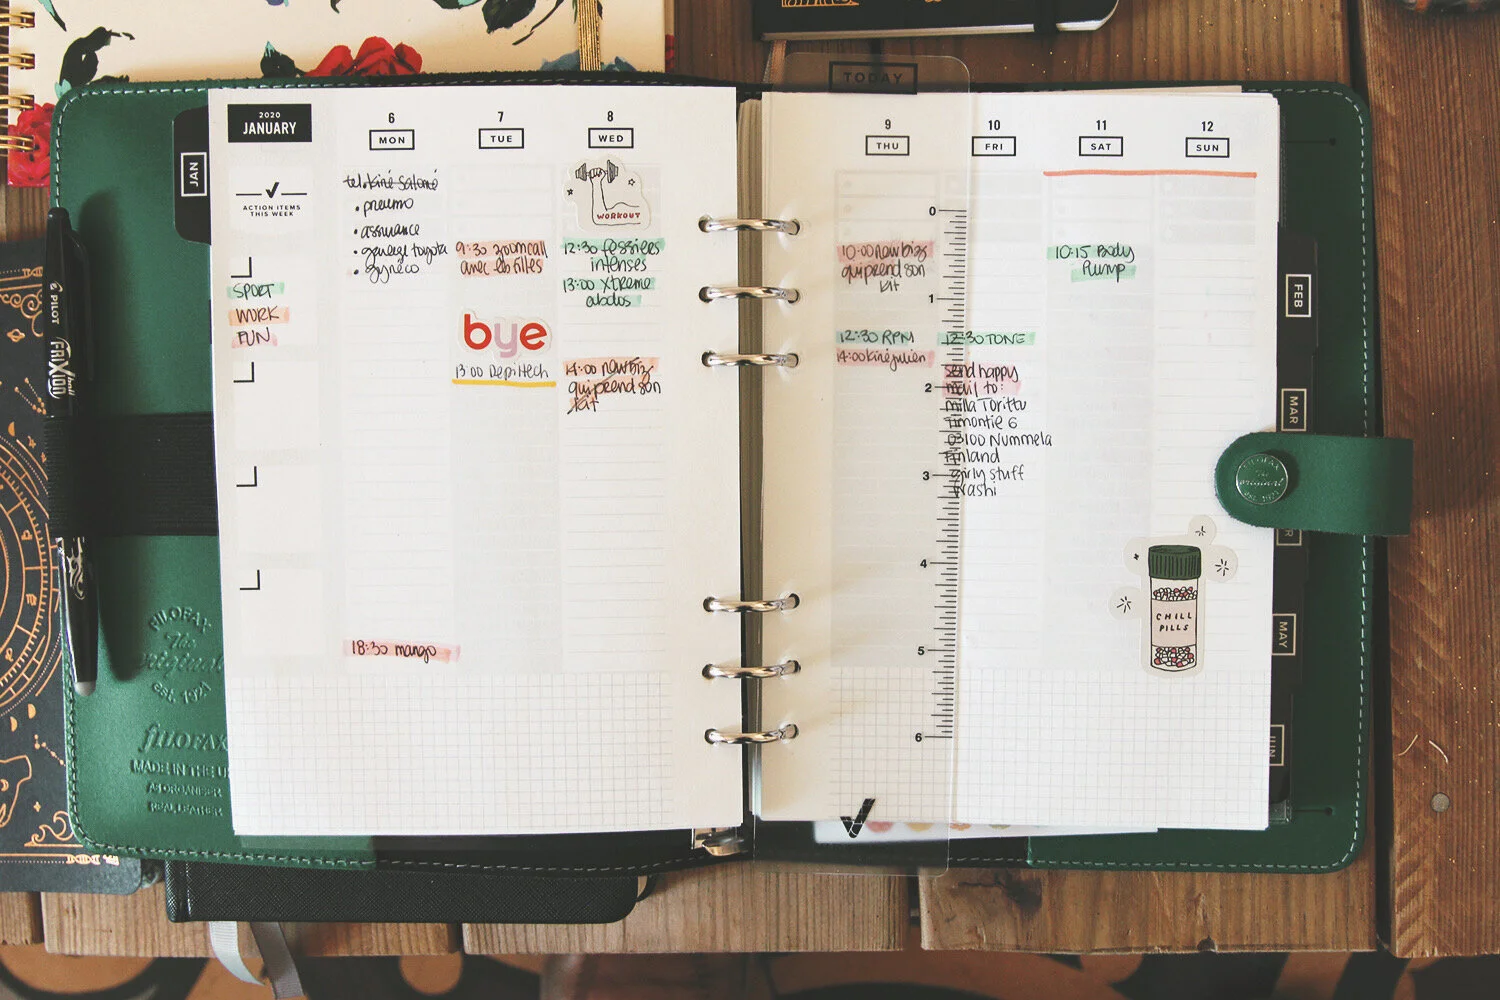 2020
JANUARY
ACTION ITEMS
THIS WEEK
SPORT
WORK
FUN
6
MON
tel. kiné salomé
• pneumo
• assurance
• garage toyota
• gynéco
18:30 mango
7
TUE
9:30 zoom call
avec les filles
bye
13:00 Depiltech
8
WED
WORKOUT
12:30 fessiers
intenses
13:00 Xtreme
abdos
14:00 newbiz
qui prend son
kit
TODAY
9
THU
10:00 newbiz
qui prend son
kit
12:30 RPM
14:00 kiné julien
0
1
2
3
4
5
6
10
FRI
12:30 TONE
send happy
mail to:
milla Torittu
Timontie 6
03100 Nummela
Finland
girly stuff
washi
11
SAT
10:15 Body
Pump
12
SUN
CHILL
PILLS
JAN
FEB
MAR
MAY
JUN
PILOT
FRIXION
FILOFAX
The
original
est. 1921
filofax
MADE IN THE U
AS ORGANISER
REAL LEATHER
FILOFAX
the
original
EST. 1921